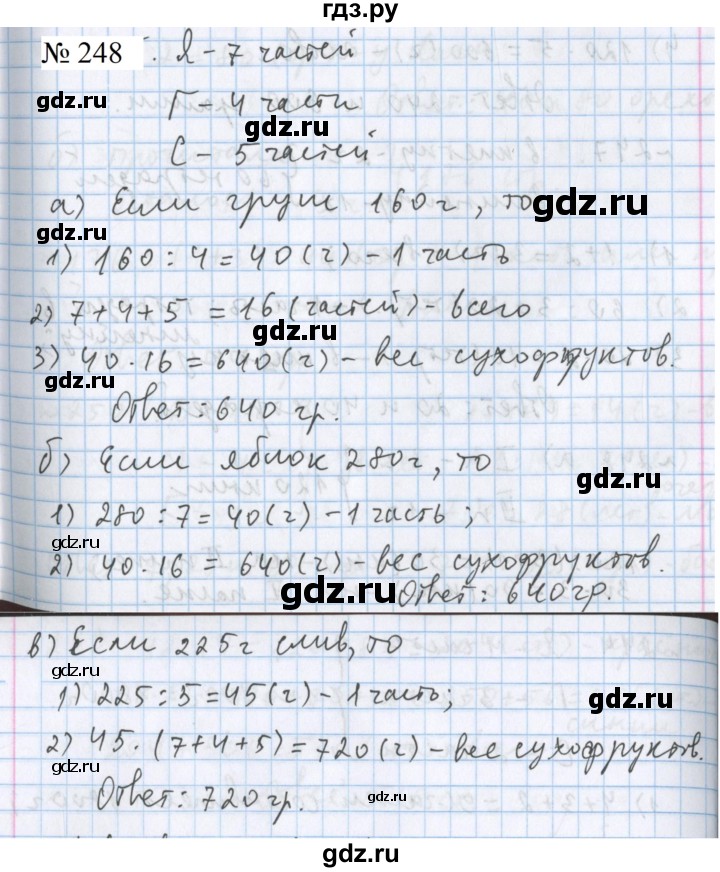 гдз.ру
№ 248 Я - 7 частей
gdz.ru
Г - 4 части
gdz.ru
С - 5 частей
а) Если груш 160г, то
gdz.ru
gdz.ru
1) 160 : 4 = 40 (г) - 1 часть
2) 7 + 4 + 5 = 16 (частей) - всего
gdz.ru
3) 40 · 16 = 640 (г) - вес сухофруктов.
gdz.ru
Ответ: 640 гр.
б) Если яблок 280г, то
gdz.ru
1) 280 : 7 = 40 (г) - 1 часть;
gdz.ru
2) 40 · 16 = 640 (г) - вес сухофруктов.
gdz.ru
Ответ: 640 гр.
в) Если 225г слив, то
gdz.ru
1) 225 : 5 = 45 (г) - 1 часть;
gdz.ru
2) 45 · (7 + 4 + 5) = 720 (г) - вес сухофруктов.
gdz.ru
Ответ: 720 гр.
gdz.ru
gdz.ru